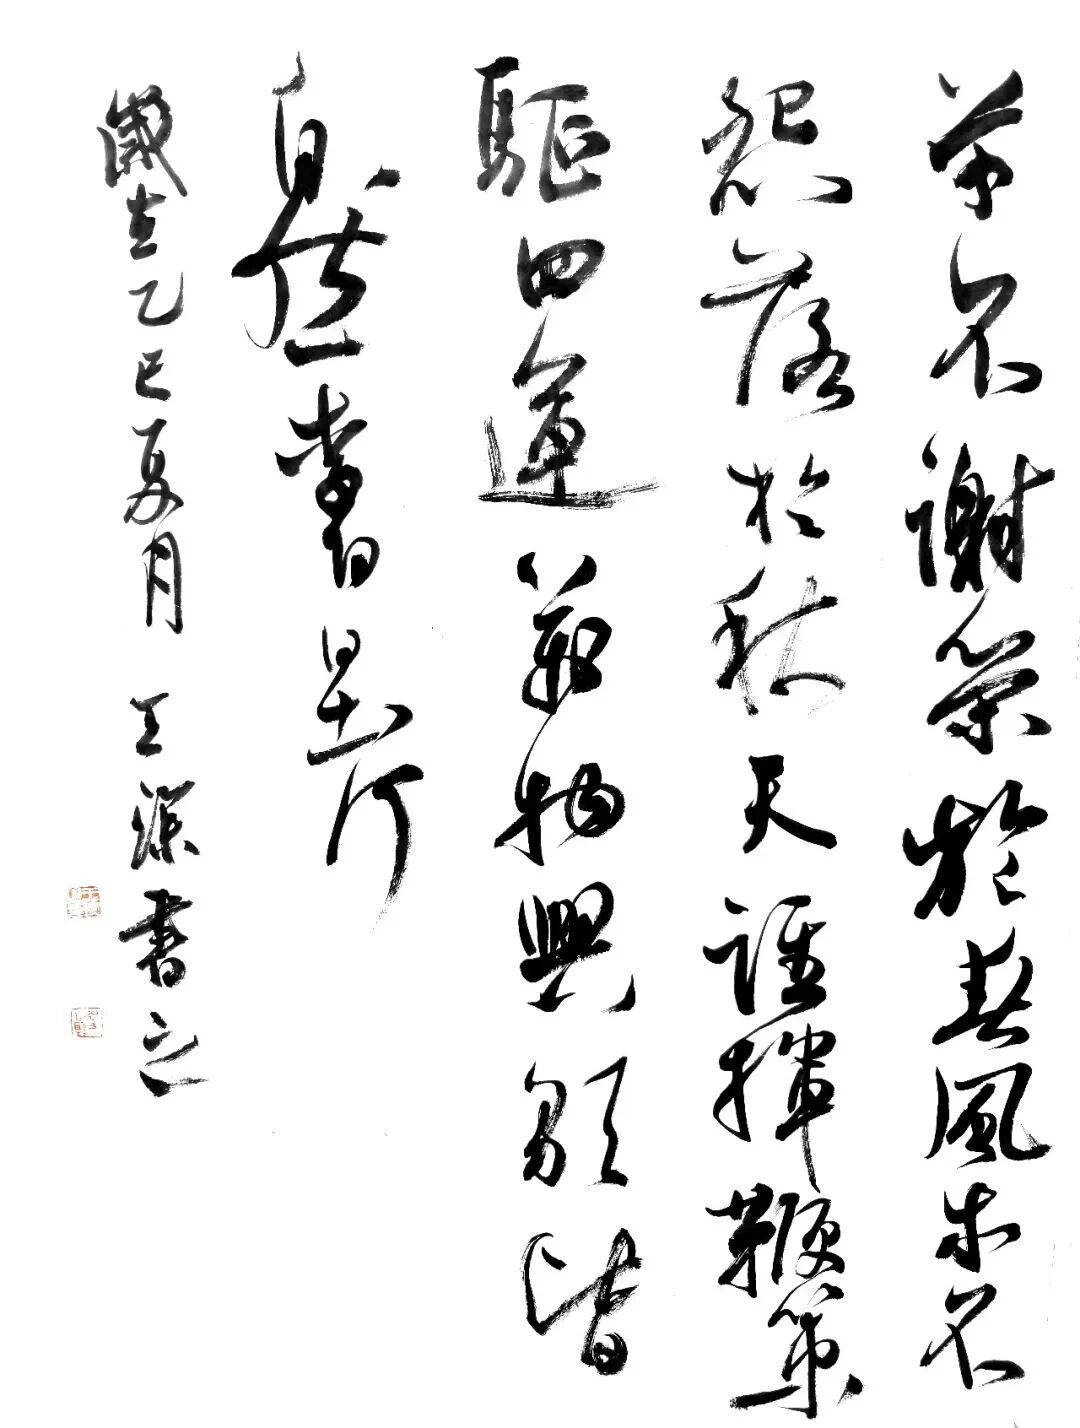 草不謝榮於春風木不
怨落於秋天誰揮鞭策
驅四運萬物興歇皆
自然李白日出行
歲在乙巳夏月王書之